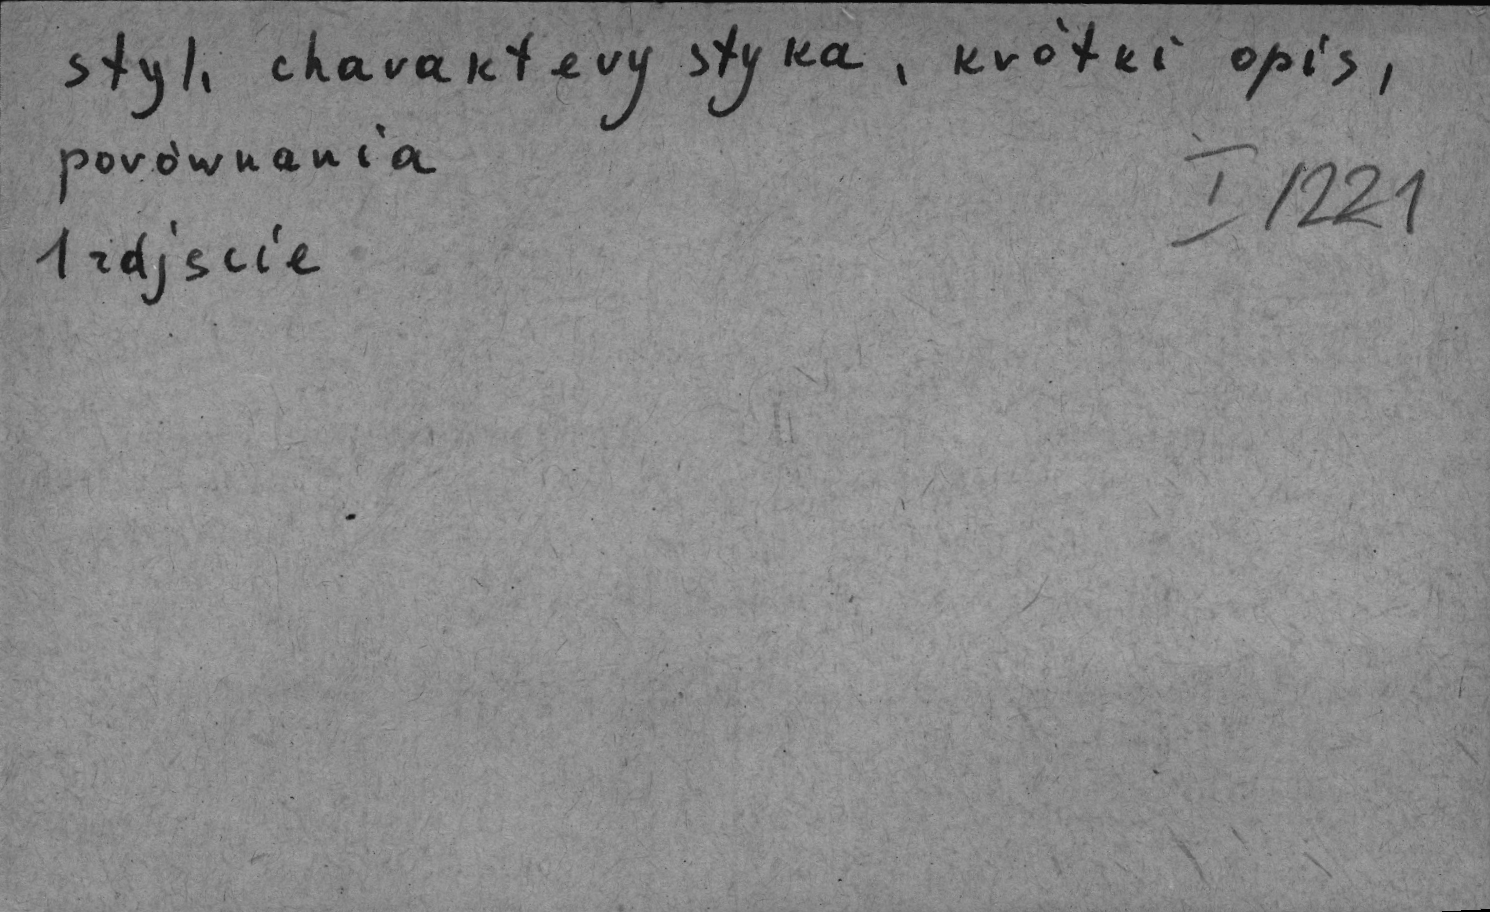 styl, charakterystyka, krótki opis,
porównania
I/1221
1 zdjęcie